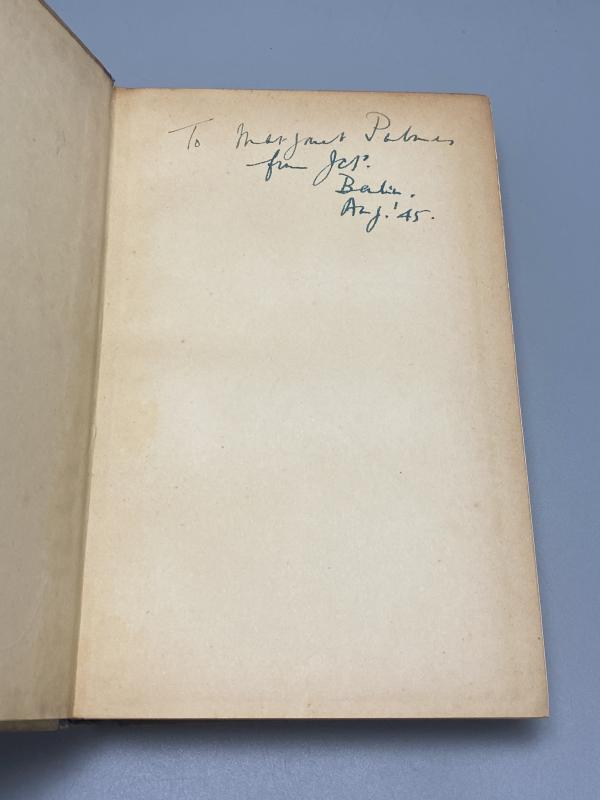 To Margaret Palmer
from JCP.
Berlin.
Aug. '45.